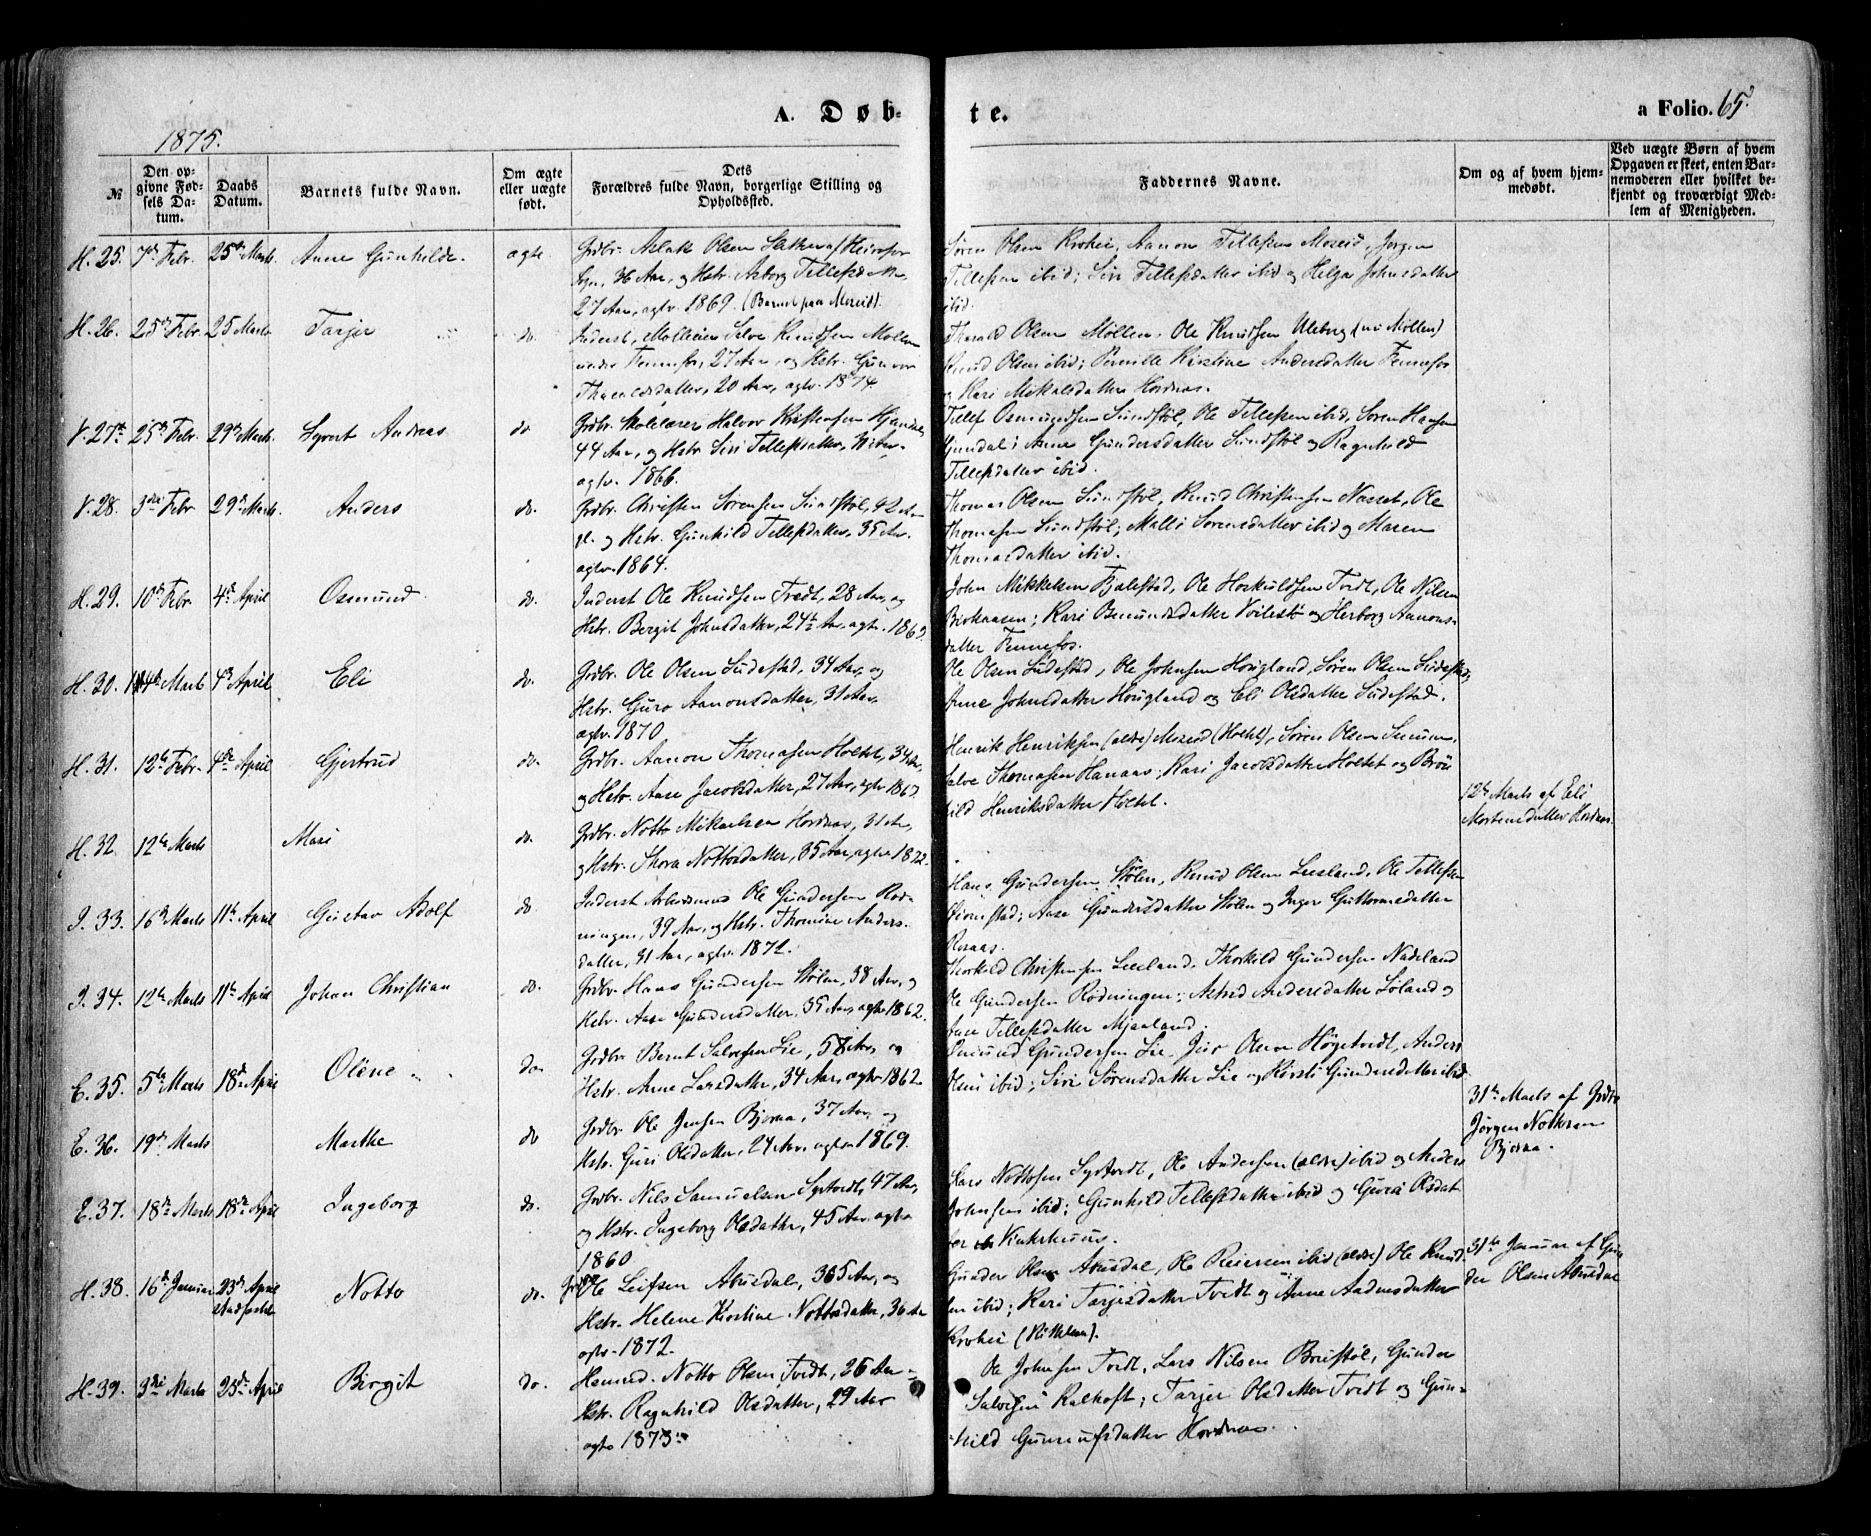 A. Døb-
te.
a Folio. 65.
1875.
№
Den op-
givne Fød-
sels Da-
tum.
Daabs
Datum.
Barnets fulde Navn.
Om ægte
eller uægte
født.
Dets
Forældres fulde Navn, borgerlige Stilling og
Opholdssted.
Faddernes Navne.
Om og af hvem hjem-
medøbt.
Ved uægte Børn af hvem
Opgaven er skeet, enten Bar-
nemoderen eller hvilket be-
kjendt og troværdigt Med-
lem af Menigheden.
H. 25. 7de Febr. 25de Marts Anne Gunhilde. ægte.
Grdbr. Aslak Olsen
Sogn, 36 Aar, og Hstr. Asborg Tellefsdatter,
27 Aar, agtv. 1869. (Barnet paa Moseid).
Søren Olsen Krokei, Aanon Tellefsen Moseid, Jørgen
Tellefsen ibid; Siri Tellefsdatter ibid og Helga Johnsdatter
ibid.
H. 26. 25de Febr. 25 Marts Tarjer do.
Inderst, Mølleier Salve Knudsen Møllen
under Fennefos, 27 Aar, og Hstr. Gunvor
Tharaldsdatter, 20 Aar, agtv. 1874.
Tharald Olsen Møllen, Ole Knudsen Uleberg (nu Møllen)
Knud Olsen ibid; Pernille Kirstine Andersdatter Fennefos
og Kari Mikalsdatter Hordnas.
V. 27de 25de Febr. 29de Marts. Syvert Andreas do
Grdbr. Skolelærer Halvor Kristensen
44 Aar, og Hstr. Siri Tellefsdatter,
agtv. 1866.
Tellef Osmundsen Sundstøl, Ole Tellefsen ibid, Søren Hansen
Anne Gundersdatter Sundstøl og Ragnhild
Tellefsdatter ibid.
V. 28. 3die Febr 29de Marts. Anders do.
Grdbr. Christen Sørensen Sundstøl, 42 Aar
gl. og Hstr. Gunhild Tellefsdatter, 35 Aar.
agtv. 1864.
Thomas Olsen Sundstøl, Knud Christensen Nasset, Ole
Thomasen Sundstøl; Malli Sørensdatter ibid og Maren
Thomasdatter ibid.
H. 29. 10de Febr. 4de April Osmund do.
Inderst Ole Knudsen Tvedt, 28 Aar, og
Hstr. Bergit Johnsdatter, 24 Aar, agtv.
John Mikkelsen Fjalestad, Ole Hoskuldsen Tvedt, Ole Nilsen
Birkaasen; Kari og Herborg Aanons-
datter Fennefos.
H. 30. 14de Marts 4de April Eli do.
Grdbr. Ole Olsen Sudestad, 34 Aar, og
Hstr. Guro Aanonsdatter, 31 Aar,
agtv. 1870.
Ole Olsen Sudestad, Ole Johnsen Hougland, Søren Olsen Sudestad,
Anne Johnsdatter Hougland og Eli Olsdatter Sudestad.
H. 31. 12te Febr. 4de April Gjertrud do.
Grdbr. Aanon Thomasen Holtet, 34 Aar,
og Hstr. Aase Jacobsdatter, 27 Aar, agtv
Henrik Henriksen (ældre) Moseid (Holtet), Søren Olsen
Salve Thomasen Hanaas; Kari Jacobsdatter Holtet og
Henriksdatter Holtet.
H. 32. 12te Marts Mari do.
Grdbr. Notto Mikalsen Hordnas, 31 Aar,
og Hstr. Thora Nottosdatter, 35 Aar, agtv. 1872.
12te Marts af Eli
Mortensdatter Hordnas.
I. 33. 16de Marts 11te April Gustav Adolf do
Inderst Ole Gundersen Rød-
ningen, 39 Aar, og Hstr. Thomine Anders-
datter, 31 Aar, agtv. 1872.
Hans Gundersen Stølen, Knud Olsen Liesland, Ole Tellefsen
Aase Gundersdatter Stølen og Inger Guttormsdatter
Rosaas.
I. 34. 12te Marts 11te April Johan Christian do.
Grdbr. Hans Gundersen Stølen, 38 Aar, og
Hstr. Aase Gundersdatter, 35 Aar, agtv. 1862.
Thorkild Christensen Liesland, Thorkild Gundersen Nadeland
Ole Gundersen Rødningen; Astrid Andersdatter Loland og
Aase Tellefsdatter Mjaaland.
E. 35. 5te Marts 18de April Oline do.
Grdbr. Bernt Salvesen Lie, 58 Aar, og
Hstr. Anne Larsdatter, 34 Aar, agtv. 1862.
Osmund Gundersen Lie, Jens Olsen Høgetvedt, Anders
Olsen ibid; Siri Sørensdatter Lie og Kirsti Gundersdatter ibid.
E. 36. 19de Marts Marthe do
Grdbr Ole Jensen Bjoraa, 37 Aar, og
Hstr. Guri Olsdatter, 24 Aar, agtv. 1869.
31te Marts af Grdbr
Jørgen Nottosen
Bjoraa.
E. 37. 18de Marts 18de April Ingeborg do.
Grdbr. Nils Samuelsen Systvedt, 47 Aar,
og Hstr. Ingeborg Olsdatter, 45 Aar, agtv
1860.
Lars Nottosen Systvedt, Ole Andersen (ældre) ibid og Anders
Johnsen ibid; Gunhild Tellefsdatter ibid og Olsdat-
ter
H. 38. 16de Januar 23de April
stadfæstet Notto do.
Grdbr. Ole Leifsen Akusdal, 36 Aar, og
Hstr. Helene Kirstine Nottosdatter, 36 Aar
agtv. 1872.
Gunder Olsen Akusdal, Ole Reiersen ibid (ældre) Ole Knud-
sen ibid; Kari Tarjesdatter Tvedt og Anne Aadnesdatter
Krokei
31te Januar af Gun-
der Olsen Akusdal
H. 39. 3die Marts 23de April Birgit do.
Husmd. Notto Olsen Tvedt, 26 Aar
Hstr. Ragnhild Olsdatter, 29 Aar
agtv 1873.
Ole Johnsen Tvedt, Lars Nilsen Brustøl, Gunder
Salvesen Kalhoft; Tarjer Olsdatter Tvedt og Gun-
hild Gunnufsdatter Hordnas.